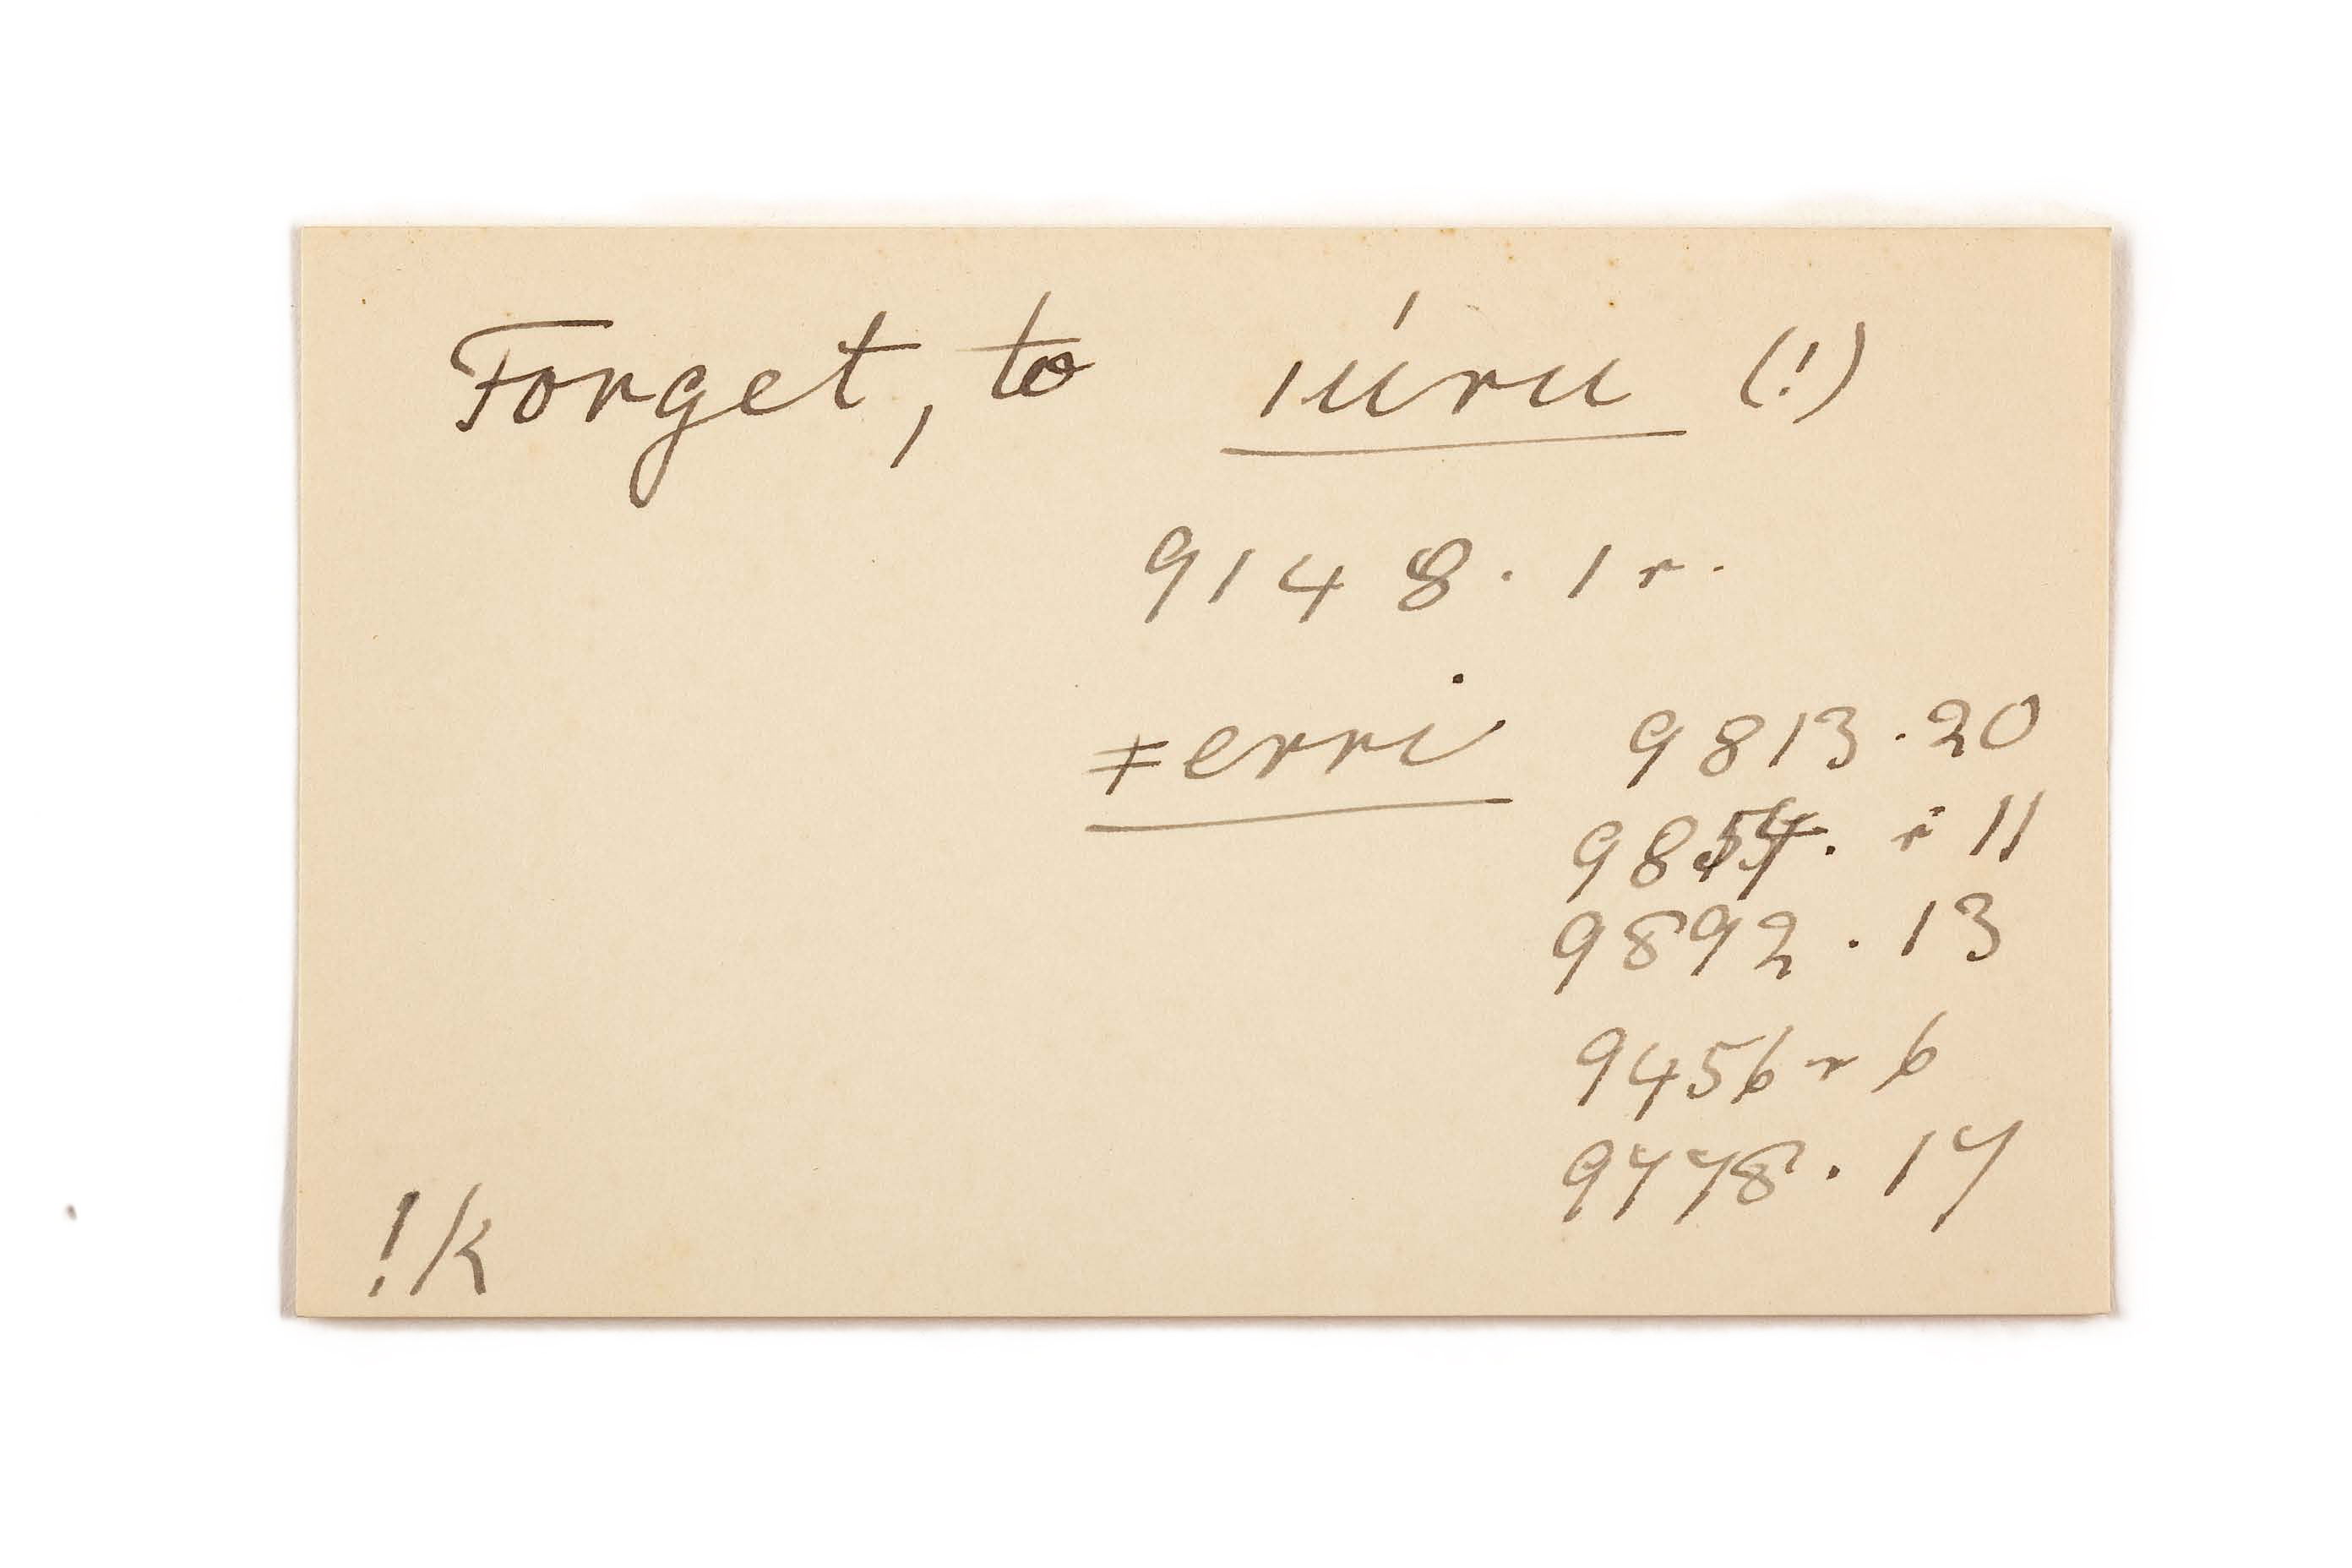 Forget, to ıúru (!)
9148. 1 r.
ǂerri 9813.20
9854. r 11
9892. 13
9456 r 6
9778. 17
!k